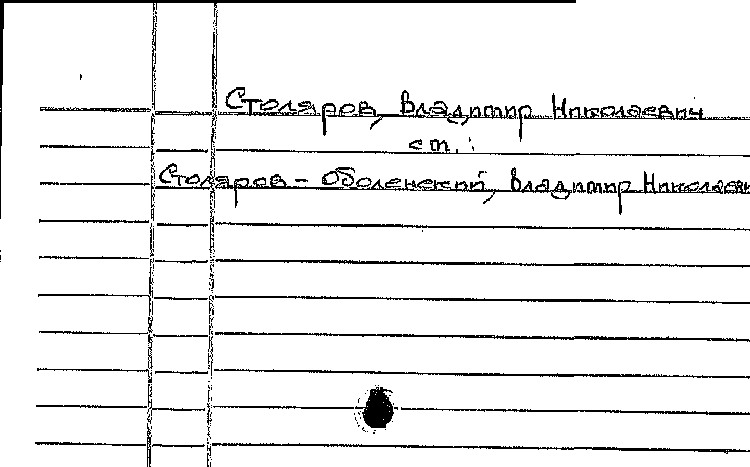 Столяров, Владимир Николаевич
см.:
Столяров - Оболенский, Владимир Николаеви